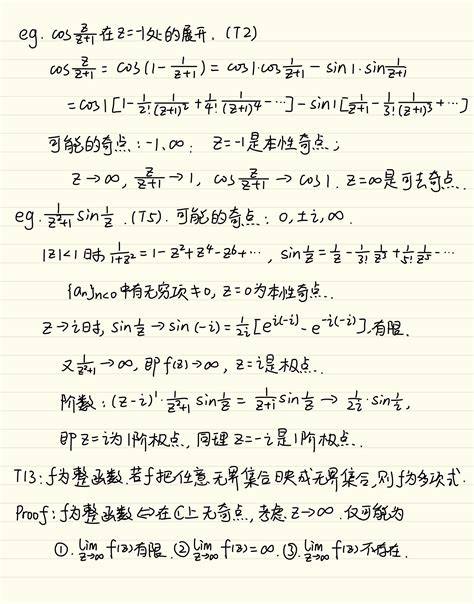 eg. cos z/(z+1) 在 z=-1处的展开. (T2)
cos z/(z+1) = cos(1 - 1/(z+1)) = cos1·cos 1/(z+1) - sin1·sin 1/(z+1)
= cos1[1 - 1/2! 1/(z+1)² + 1/4! 1/(z+1)⁴ - ⋯] - sin1[1/(z+1) - 1/3! 1/(z+1)³ + ⋯]
可能的奇点: -1, ∞: z=-1是本性奇点;
z→∞, z/(z+1)→1, cos z/(z+1) → cos1. z=∞是可去奇点.
eg. 1/(z²+1) sin 1/z. (T5). 可能的奇点: 0, ±i, ∞.
|z|<1时, 1/(1+z²) = 1 - z² + z⁴ - z⁶ + ⋯, sin 1/z = 1/z - 1/3! 1/z³ + 1/5! 1/z⁵ - ⋯
{an}n<0 中有无穷项≠0, z=0为本性奇点.
z→i时, sin 1/z → sin(-i) = 1/2i [e^{i(-i)} - e^{-i(-i)}], 有限.
又 1/(z²+1) → ∞, 即 f(z)→∞, z=i是极点.
阶数: (z-i)¹· 1/(z²+1) sin 1/z = 1/(z+i) sin 1/z → 1/2i · sin 1/i,
即z=i为1阶极点, 同理 z=-i是1阶极点.
T13: f为整函数. 若f把任意无界集合映成无界集合, 则f为多项式.
Proof: f为整函数 ⇔ 在ℂ上无奇点, 考虑 z→∞. 仅可能为
①. lim z→∞ f(z)有限. ②. lim z→∞ f(z)=∞. ③. lim z→∞ f(z)不存在.